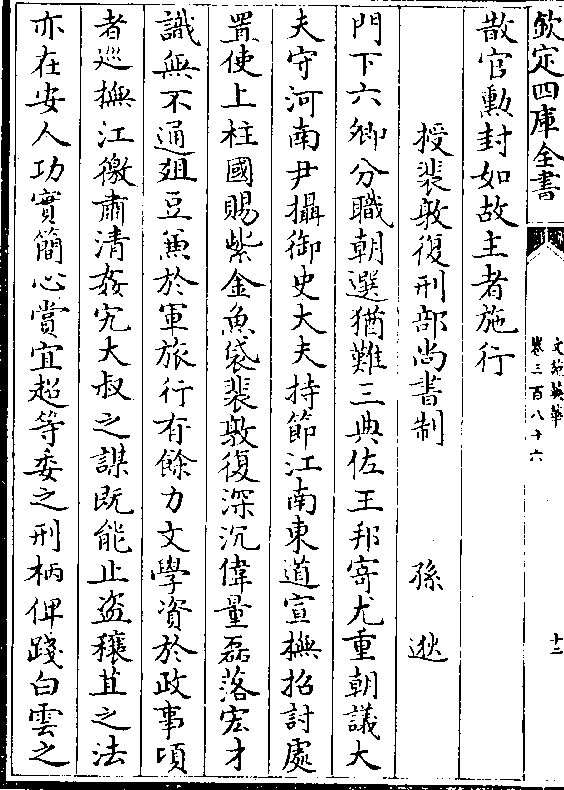 欽定四庫全書
文苑英華
卷三百八十六
十二
散官勲封如故主者施行
授裴敦復刑部尚書制 孫逖
門下六卿分職朝選猶難三典佐王邦寄尤重朝議大
夫守河南尹攝御史大夫持節江南東道宣撫招討處
置使上柱國賜紫金魚袋裴敦復深沉偉量磊落宏才
識無不通俎豆兼於軍旅行有餘力文學資於政事頃
者巡撫江徼肅清姦宄大叔之謀既能止盜穰苴之法
亦在安人功實簡心賞宜超等委之刑柄俾踐白雲之